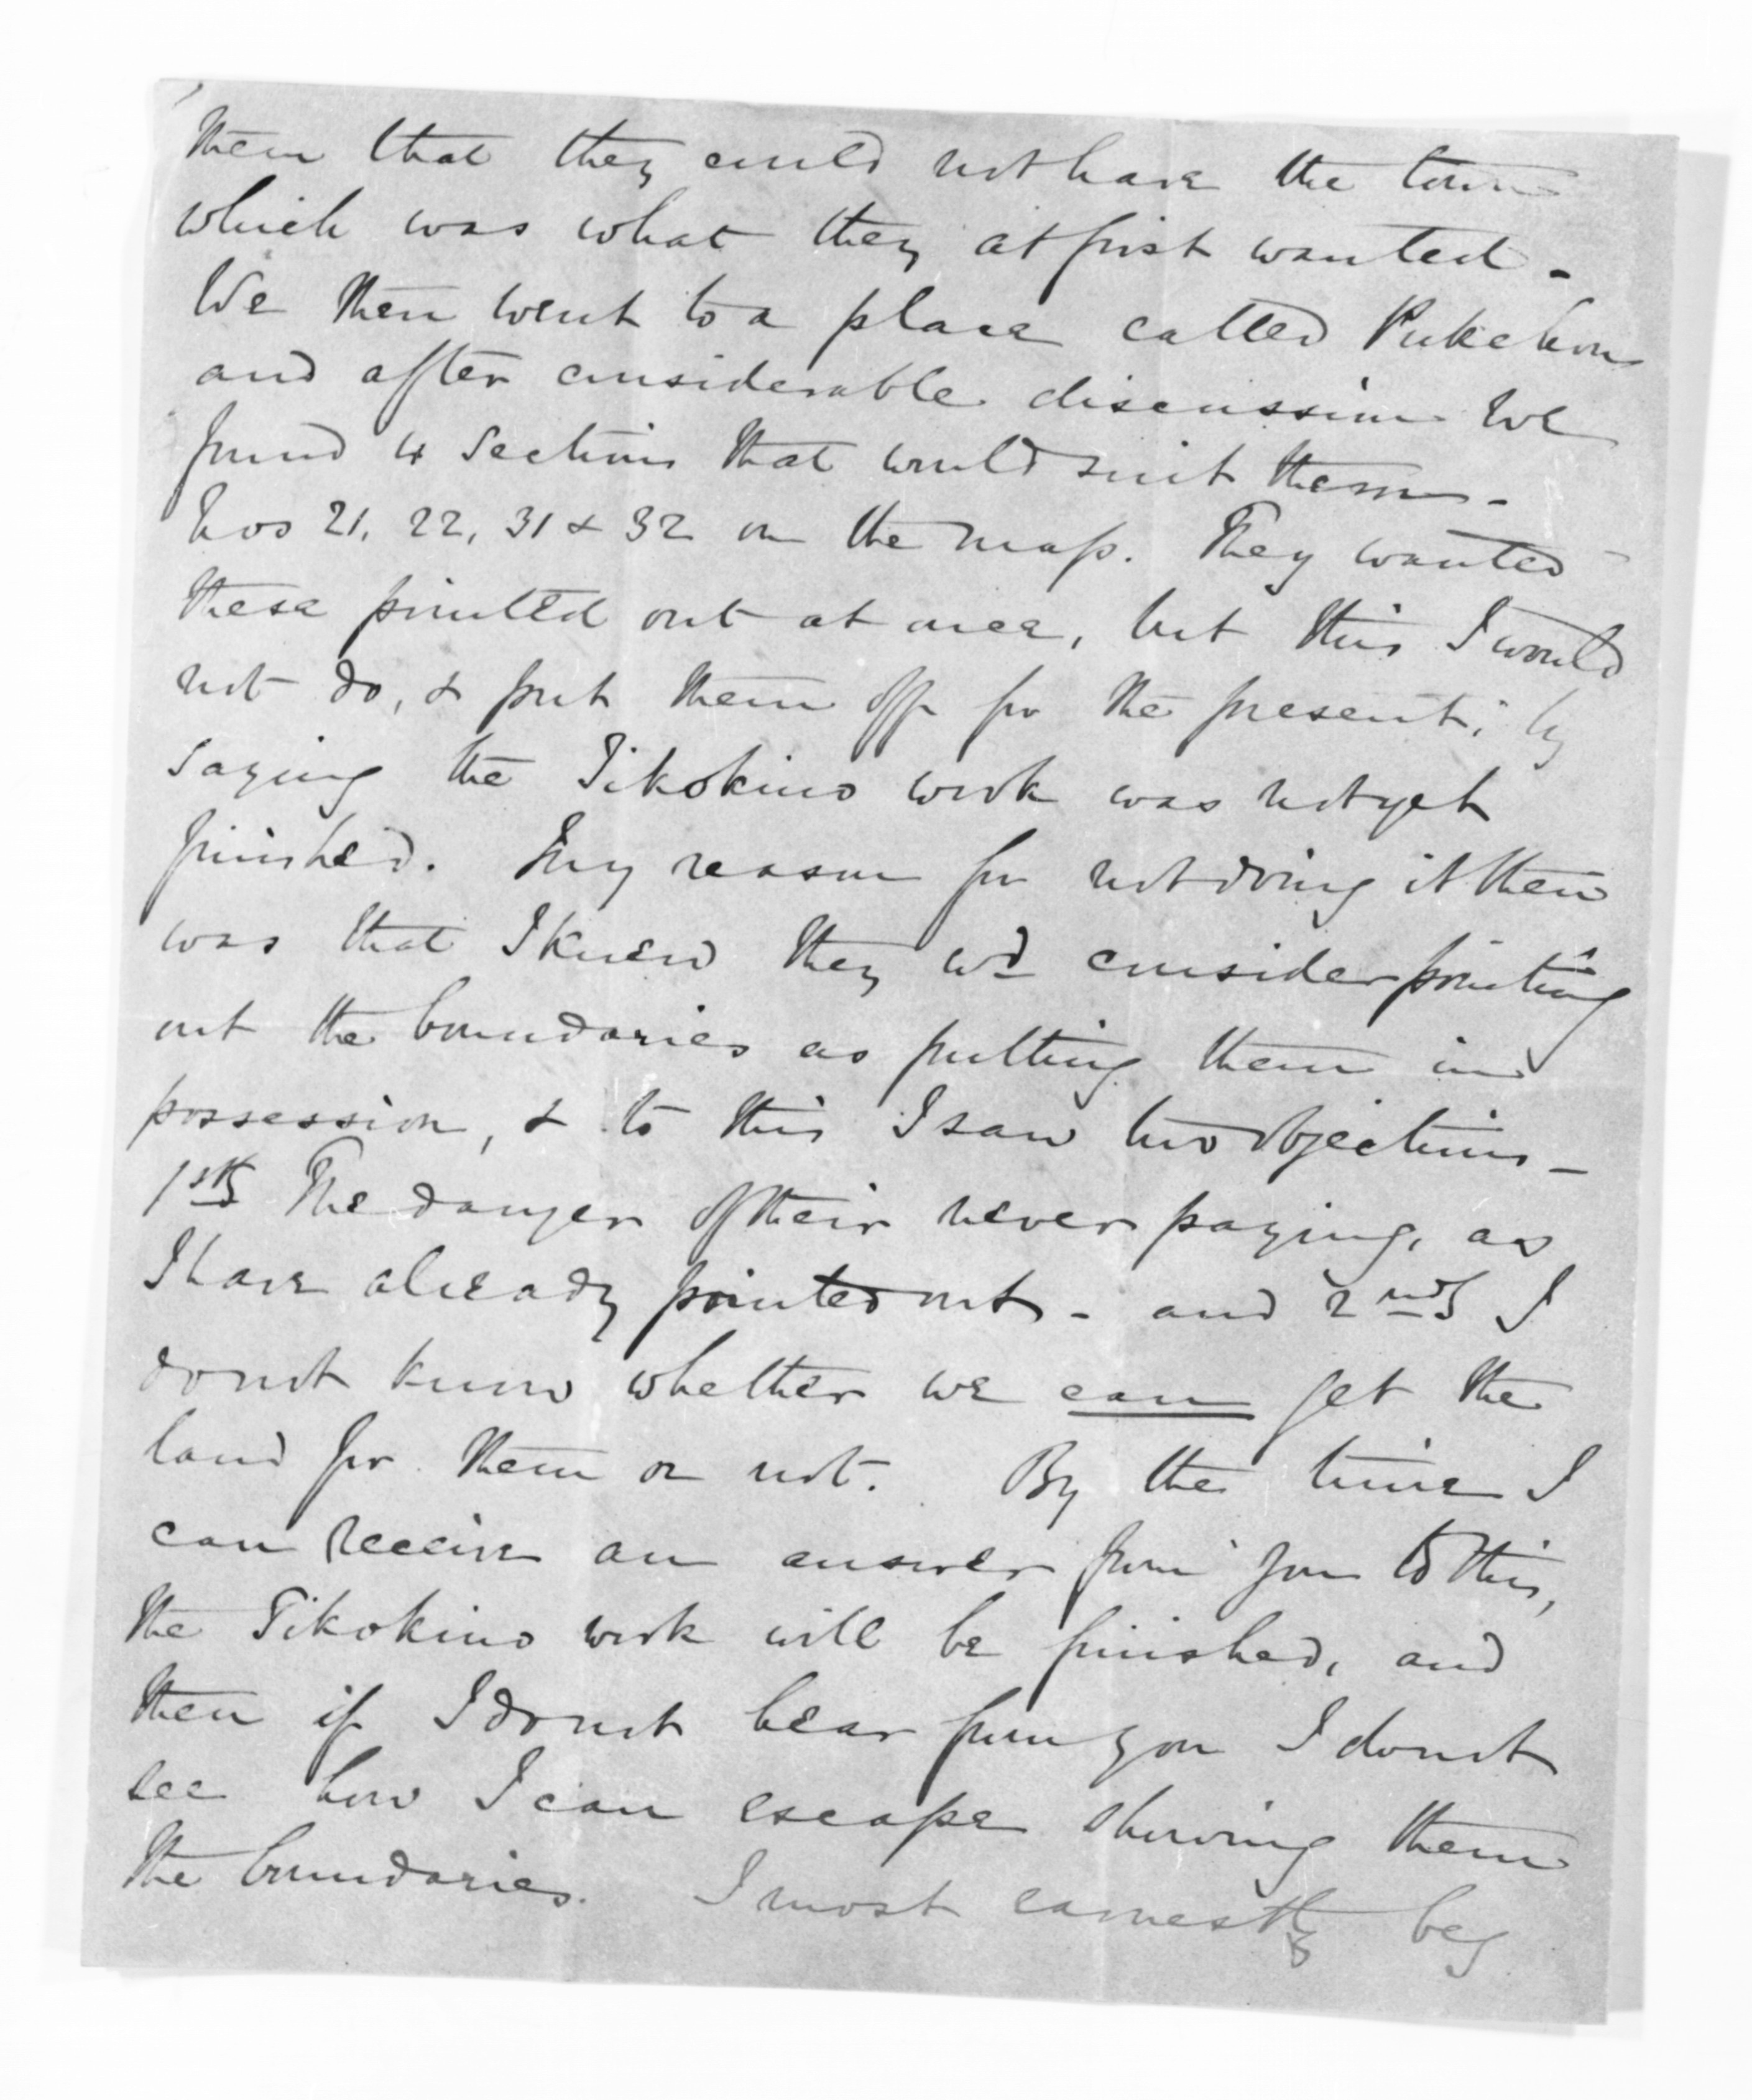 them that they could not have the town
which was what they at first wanted -
We then went to a place called Pukehou
and after considerable discussion we
found 4 sections that would suit them -
Nos 21, 22, 31 & 32 on the map. They wanted
these pointed out at once, but this I would
not do, & put them off for the present, by
saying the Tikokino work was not yet
finished. My reason for not doing it then
was that I knew they wd consider pointing
out the boundaries as putting them in
possession, & to this I saw two objections -
1stly The danger of their never paying, as
I have already pointed out - and 2ndly I
do not know whether we can get the
land for them or not. By the time I
can receive an answer from you to this,
the Tikokino work will be finished, and
then if I do not hear from you I do not
see how I can escape shewing them
the boundaries. I most earnestly beg